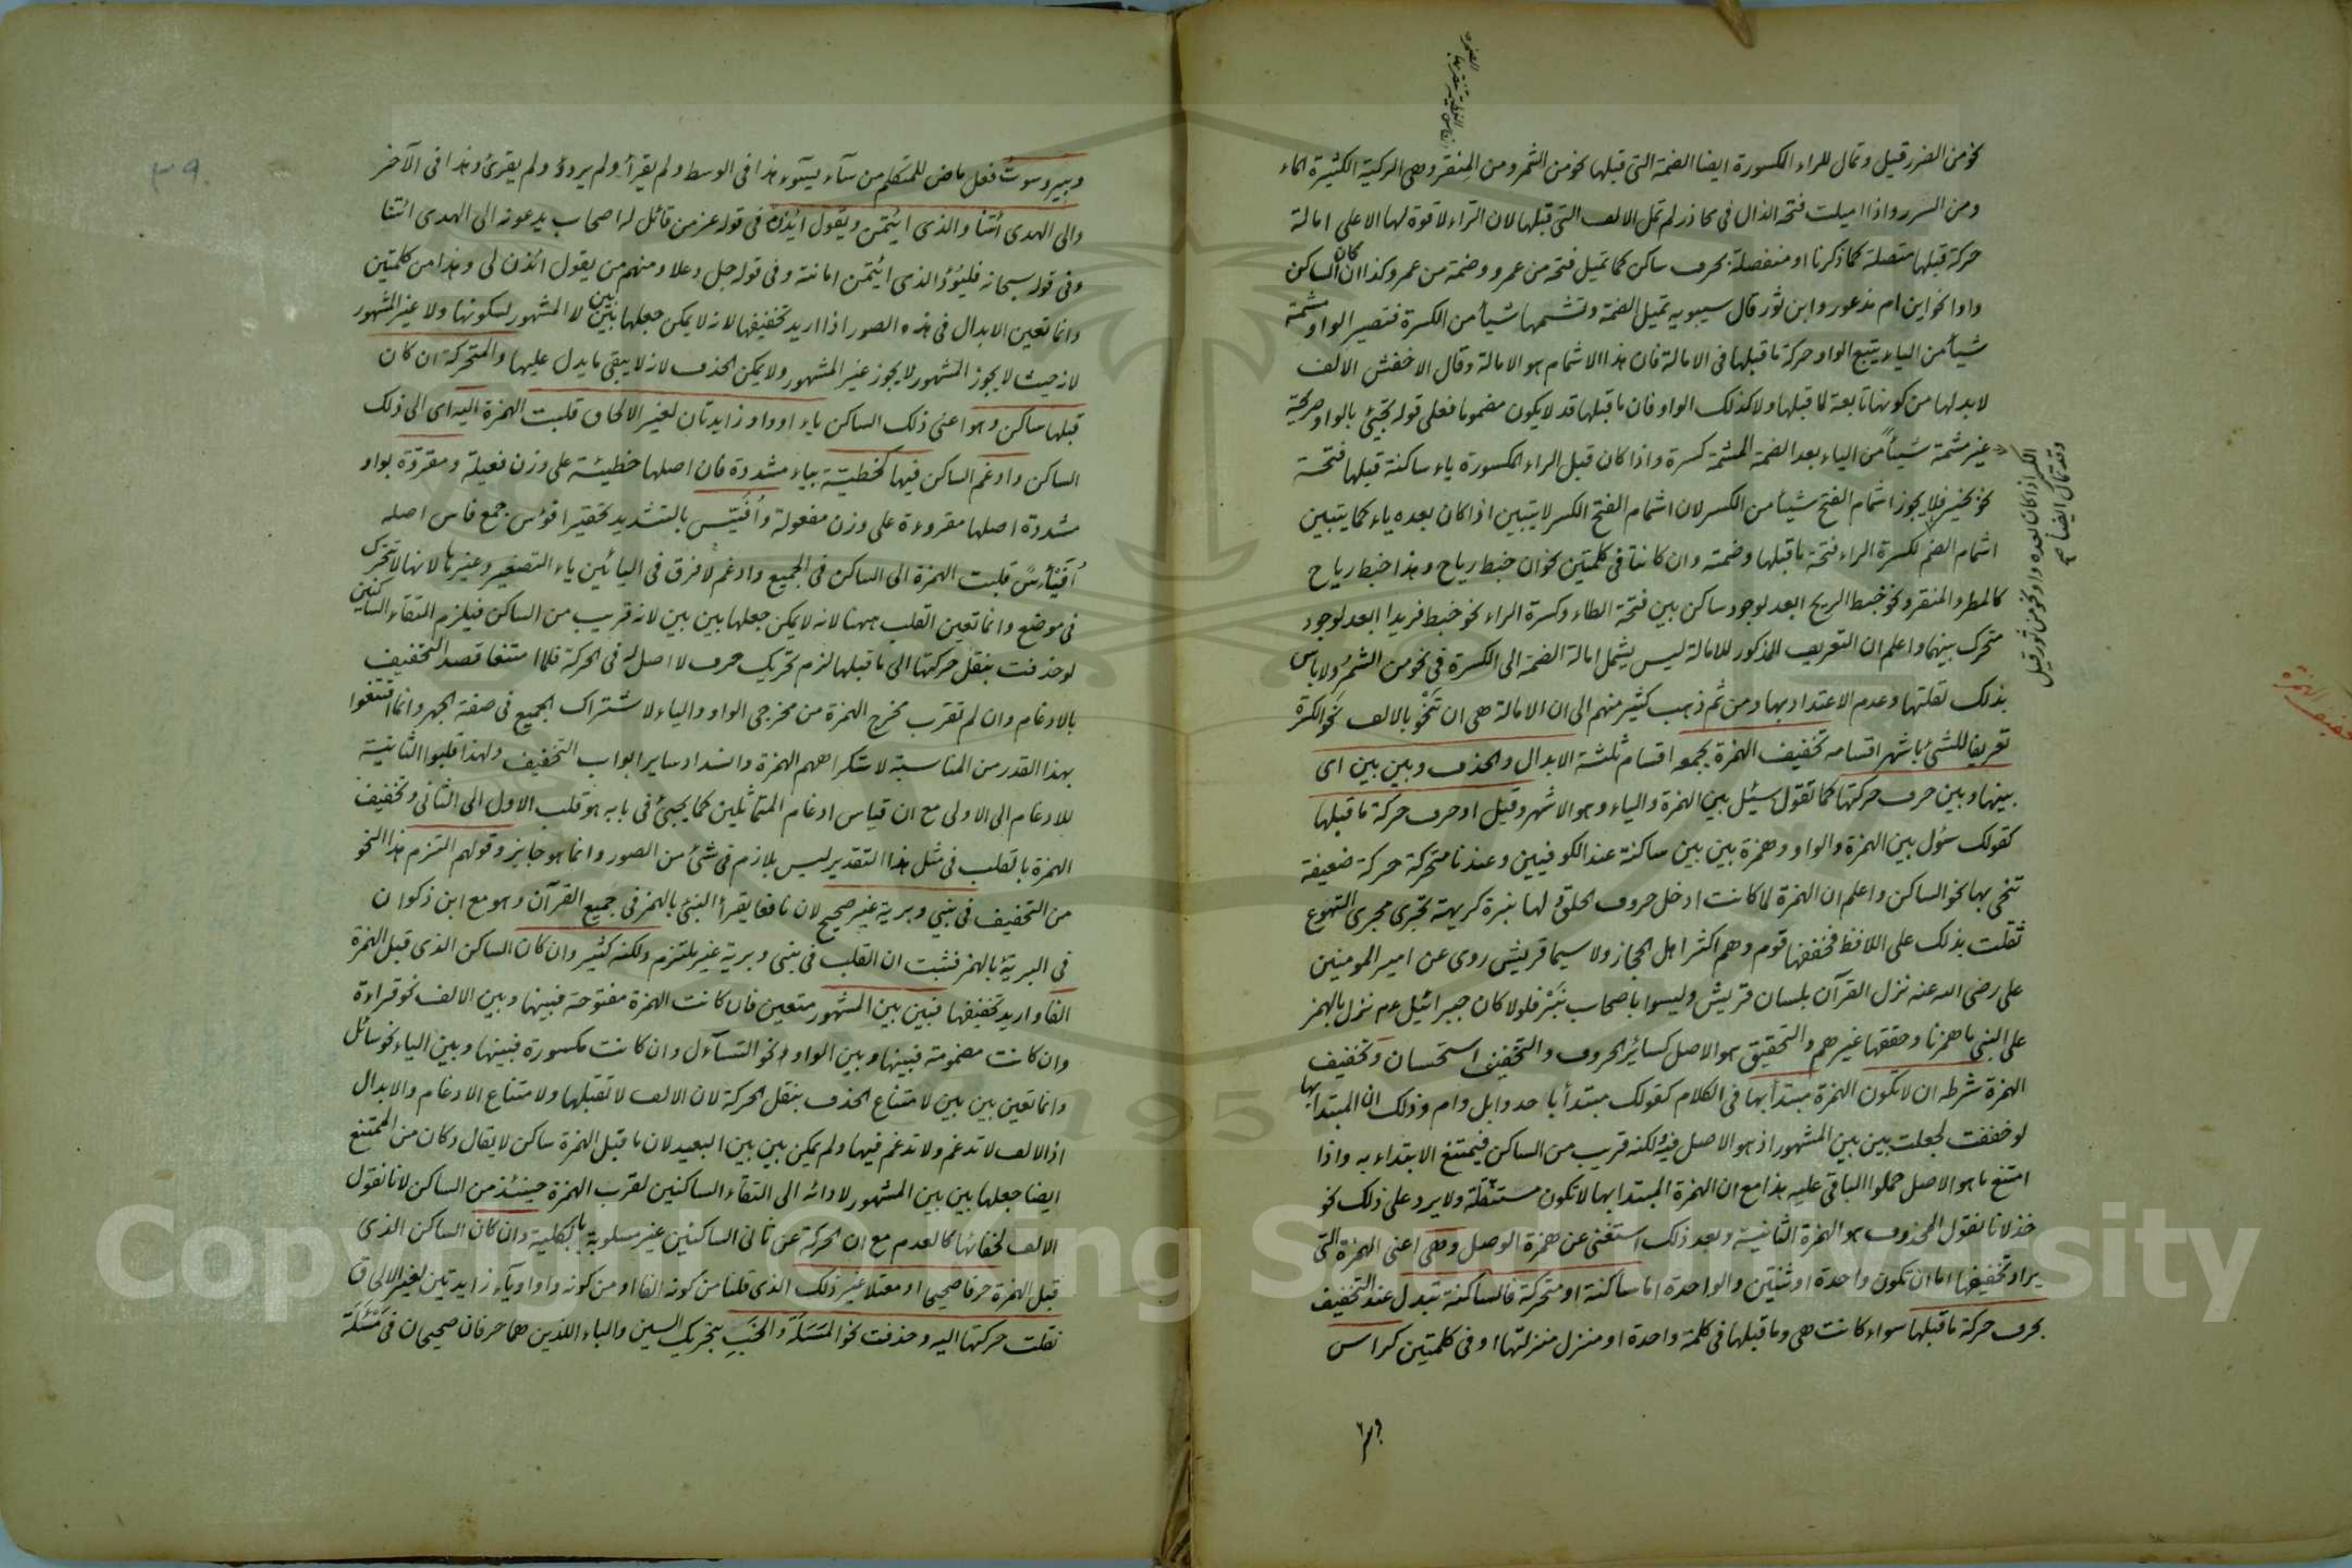 نحو من الضرر قيل وتمال للراء المكسورة ايضا الضمة التى قبلها نحو من الثمر ومن المنقر وهى الركية الكثيرة الماء
ومن السرر واذا اميلت فتحة الذال فى محاذر لم تمل الالف التى قبلها لان الراء لا قوة لها الا على امالة
حركة قبلها متصلة كما ذكرنا او منفصلة بحرف ساكن كما تميل فتحة من عمرو وضمة من عمر وكذا ان كان الساكن
واوا نحو ابن ام مذعور وابن ثور قال سيبويه تميل الضمة وتشمها شيأ من الكسرة فتصير الواو مشمة
شيأ من الياء يتبع الواو حركة ما قبلها فى الامالة فان هذا الاشمام هو الامالة وقال الاخفش الالف
لا بد لها من كونها تابعة لما قبلها ولا كذلك الواو فان ما قبلها قد لا يكون مضموما فعلى قوله تجيئ بالواو صريحة
غير مشمة شيأ من الياء بعد الضمة المشمة كسرة واذا كان قبل الراء المكسورة ياء ساكنة قبلها فتحة
نحو بخير فلا يجوز اشمام الفتح شيأ من الكسر لان اشمام الفتح الكسر لا يتبين اذا كان بعده ياء كما يتبين
اشمام الضم لكسرة الراء فتحة ما قبلها وضمته وان كانتا فى كلمتين نحو ان خبط رياح وهذا خبط رياح
كالمطر والمنقر ونحو خبط الريح ابعد لوجود ساكن بين فتحة الطاء وكسرة الراء نحو خبط فريد ابعد لوجود
متحرك بينهما واعلم ان التعريف المذكور للامالة ليس يشمل امالة الضمة الى الكسرة فى نحو من الثمر ولا باس
بذلك لقلتها وعدم الاعتداد بها ومن ثم ذهب كثير منهم الى ان الامالة هى ان تنحو بالالف نحو الكسرة
تعريفا للشئ باشهر اقسامه تخفيف الهمزة يجمعه اقسام ثلثة الابدال والحذف وبين بين اى
بينها وبين حرف حركتها كما تقول سئل بين الهمزة والياء وهو الاشهر وقيل او حرف حركة ما قبلها
كقولك سؤل بين الهمزة والواو وهمزة بين بين ساكنة عند الكوفيين وعندنا متحركة حركة ضعيفة
تنحى بها نحو الساكن واعلم ان الهمزة لما كانت ادخل حروف الحلق ولها نبرة كريهة تجرى مجرى التهوع
ثقلت بذلك على اللافظ فخففها قوم وهم اكثر اهل الحجاز ولا سيما قريش روى عن امير المومنين
على رضى الله عنه نزل القرآن بلسان قريش وليسوا باصحاب نبر فلولا كان جبرائيل عم نزل بالهمز
على النبى ما همزنا وحققها غيرهم والتحقيق هو الاصل كسائر الحروف والتخفيف استحسان وتخفيف
الهمزة شرطه ان لا تكون الهمزة مبتدأ بها فى الكلام كقولك مبتدأ با حد وابل وام وذلك ان المبتدا بها
لو خففت لجعلت بين بين المشهور اذ هو الاصل فيه لكنه قريب من الساكن فيمتنع الابتداء به واذا
امتنع ما هو الاصل حملوا الباقى عليه هذا مع ان الهمزة المبتدا بها لا تكون مستثقلة ولا يرد على ذلك نحو
خذ لانا نقول المحذوف هو الهمزة الثانية وبعد ذلك استغنى عن همزة الوصل وهى اعنى الهمزة التى
يراد تخفيفها اما ان تكون واحدة او ثنتين والواحدة اما ساكنة او متحركة فالساكنة تبدل عند التخفيف
بحرف حركة ما قبلها سواء كانت هى وما قبلها فى كلمة واحدة او منزل منزلتها او فى كلمتين كراس
وقد تمال ايضا ضم
الكسر اذا كان بعده واو نحو من ثور قيل
تخفيف الهمزة
وبير وسوت فعل ماض للمتكلم من سآء يسوء هذا فى الوسط ولم يقرأ ولم يردؤ ولم يقرئ وهذا فى الآخر
والى الهدى ائتنا والذى ائتمن ويقول ائذن فى قوله عز من قائل له اصحاب يدعونه الى الهدى ائتنا
وفى قوله سبحانه فليؤد الذى ائتمن امانته وفى قوله جل وعلا ومنهم من يقول ائذن لى وهذا من كلمتين
وانما تعين الابدال فى هذه الصور اذا اريد تخفيفها لانه لا يمكن جعلها بين بين لا المشهور لسكونها ولا غير المشهور
لانه حيث لا يجوز المشهور لا يجوز غير المشهور ولا يمكن الحذف لانه لا يبقى ما يدل عليها والمتحركة ان كان
قبلها ساكن وهو اعنى ذلك الساكن ياء او واو زايدتان لغير الالحاق قلبت الهمزة اليه اى الى ذلك
الساكن وادغم الساكن فيها كخطية بياء مشددة فان اصلها خطيئة على وزن فعيلة ومقروة بواو
مشددة اصلها مقروءة على وزن مفعولة وأفيس بالتشديد تحقير افؤس جمع فاس اصله
أفيئس قلبت الهمزة الى الساكن فى الجميع وادغم لا فرق فى اليائين ياء التصغير وغيرها لانها لا تتحرك
فى موضع وانما تعين القلب ههنا لانه لا يمكن جعلها بين بين لانه قريب من الساكن فيلزم التقاء الساكنين
لو حذفت بنقل حركتها الى ما قبلها لزم تحريك حرف لا اصل له فى الحركة فلما امتنعا قصد التخفيف
بالادغام وان لم تقرب مخرج الهمزة من مخرجى الواو والياء لاشتراك الجميع فى صفة الجهر وانما اقتنعوا
بهذا القدر من المناسبة لاستكراههم الهمزة وانسداد ساير ابواب التخفيف ولهذا قلبوا الثانية
للادغام الى الاولى مع ان قياس ادغام المتماثلين كما يجيئ فى بابه هو قلب الاول الى الثانى وتخفيف
الهمزة بالقلب فى مثل هذا التقدير ليس بلازم فى شئ من الصور وانما هو جايز وقولهم التزم هذا النحو
من التخفيف فى نبى وبرية غير صحيح لان نافعا يقرأ النبئ بالهمز فى جميع القرآن وهو مع ابن ذكوان
فى البريئة بالهمز فثبت ان القلب فى نبى وبرية غير ملتزم ولكنه كثير وان كان الساكن الذى قبل الهمزة
الفا واريد تخفيفها فبين بين المشهور متعين فان كانت الهمزة مفتوحة فبينها وبين الالف نحو قراءة
وان كانت مضمومة فبينها وبين الواو نحو التساؤل وان كانت مكسورة فبينها وبين الياء نحو سائل
وانما تعين بين بين لامتناع الحذف بنقل الحركة لان الالف لا تقبلها ولامتناع الادغام والابدال
اذ الالف لا تدغم ولا تدغم فيها ولم يمكن بين بين البعيد لان ما قبل الهمزة ساكن لا يقال وكان من الممتنع
ايضا جعلها بين بين المشهور لادائه الى التقاء الساكنين لقرب الهمزة حينئذ من الساكن لانا نقول
الالف لخفائها كالعدم مع ان الحركة عن ثانى الساكنين غير مسلوبة بالكلية وان كان الساكن الذى
قبل الهمزة حرفا صحيحا او معتلا غير ذلك الذى قلنا من كونه الفا او من كونه واوا وياء زايدتين لغير الالحاق
نقلت حركتها اليه وحذفت نحو المسلة والخب بتحريك السين والباء اللذين هما حرفان صحيحان فى مسئلة
Copyright © King Saud University
1957